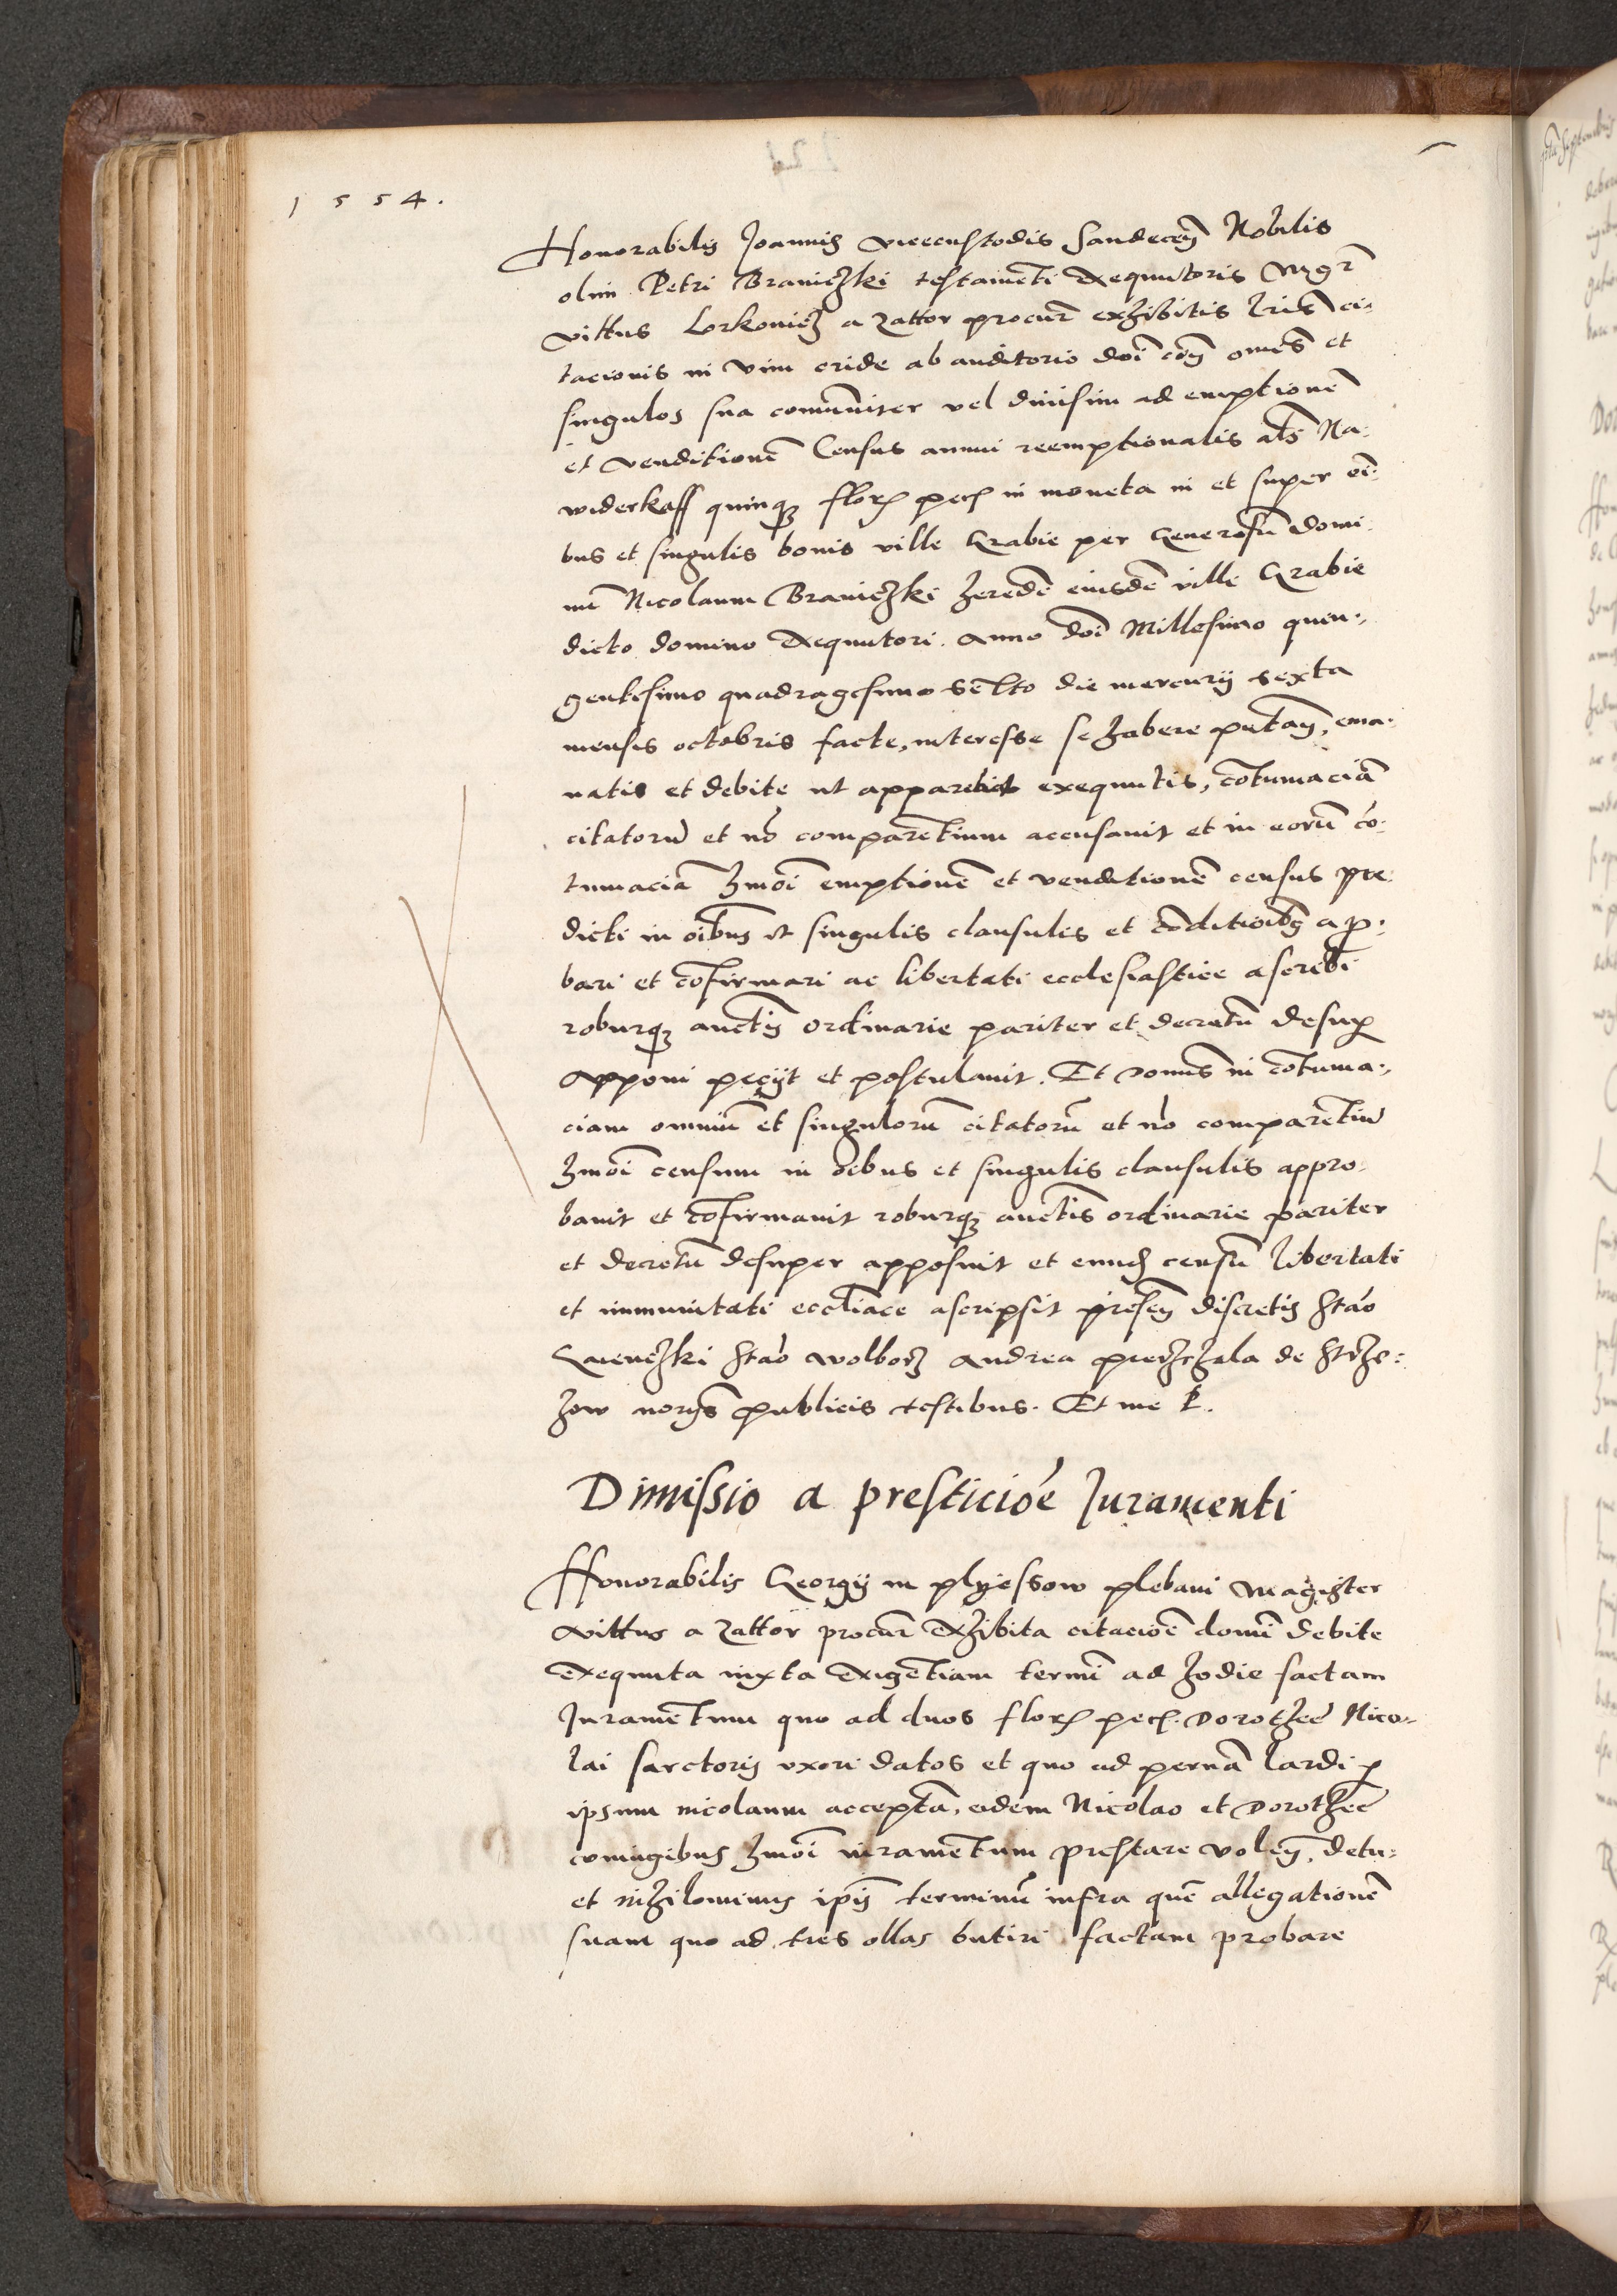 1554.
Honorabilis Joannis vicecustodis Sandecen̄ Nobilis
olim Petri Braniczki testamēti Exequutoris Mgr̄
vittus Lorkovicz a Zattor procur̄ exhibitis Lris̄ ci-
tacionis in vim cride ab auditorio doī eōȳ omes̄ et
singulos sua comuniter vel diuisim ad emptionē
et venditionē Census annui reemptionalis als̄ Na
widerkaff quinqꝫ florꝭ pecꝭ in moneta in et super oī-
bus et singulis bonis ville Grabie per Generosū domi
nū Nicolaum Braniczki heredē eiusdē ville Grabie
dicto domino Exequutori. Anno doī Millesimo quin-
gentesimo quadragesimo sexto die mercurij sexta
mensis octobris facte, interesse se habere putan̄, ema-
natis et debite ut apparebat exequutis, cōtumaciā
citatorū et nō comparētium accusauit et in eorū cō-
tumaciā hmōi emptionē et venditionē census pre
dicti in oībus et singulis clausulis et cōditioībꝫ apꝓ-
bari et cōfirmari ac libertati ecclesiastice ascribi
roburqꝫ auctis̄ ordinarie pariter et decretū desuꝑ
Apponi peciit et postulauit. Et domūs in cōtuma-
ciam omniū et singulorū citatorū et nō comparētiū
hmōi censum in oībus et singulis clausulis appro-
bauit et cōfirmauit roburqꝫ auctis̄ ordinarie pariter
et decretū desuper apposuit et eundꝭ censū libertati
et immunitati eccl̄iace ascripsit presēn̄ discretis Stāo
Staō wolborz Andrea de
norys̄ publicis testibus. Et me
Dimissio a presticiōe Juramenti
Honorabilis Georgij in plyessow plebani Magister
vittus a Zattor procur̄ Exhibita citaciōe domī debite
Exequuta iuxta Exigētiam termī ad hodie factam
Juramētum quo ad duos florꝭ pecꝭ. Dorothee Nico-
lai sarctoris vxori datos et quo ad pernā lardi ꝑ
ipsum nicolaum acceptā, eidem Nicolao et Dorothee
coniugibus hmōi iuramētum prestare volēn̄. detu-
et nihilominus ipīs terminū infra quē allegationē
suam quo ad tres ollas butiri factam probare